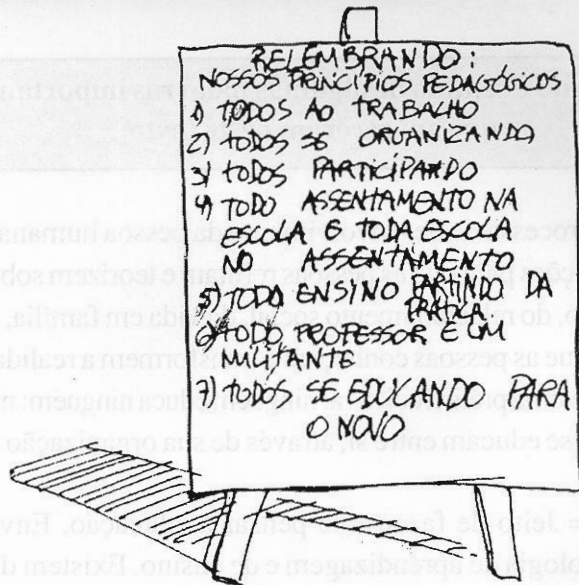 RELEMBRANDO:
NOSSOS PRINCÍPIOS PEDAGÓGICOS
1) TODOS AO TRABALHO
2) TODOS SE ORGANIZANDO
3) TODOS PARTICIPANDO
4) TODO ASSENTAMENTO NA
ESCOLA E TODA ESCOLA
NO ASSENTAMENTO
5) TODO ENSINO PARTINDO DA
PRÁTICA
6) TODO PROFESSOR É UM
MILITANTE
7) TODOS SE EDUCANDO PARA
O NOVO